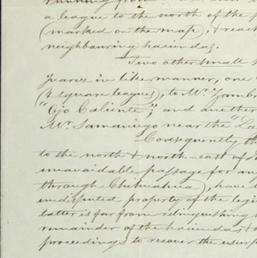 a league to the north of the
(marked on the map), & reach
neighbouring haciendas.
Two other small
Juarez in like manner, one
square leagues), to Mr.
"Ojo Caliente", and another
Mr. Samaniego near the "La
Consequently the
to the north & north-east of
unavoidable passage for any
through Chihuahua), have
undisputed property of the legi
latter is far from relinquishing
remainder of the haciendas &
proceedings to recover the usurp